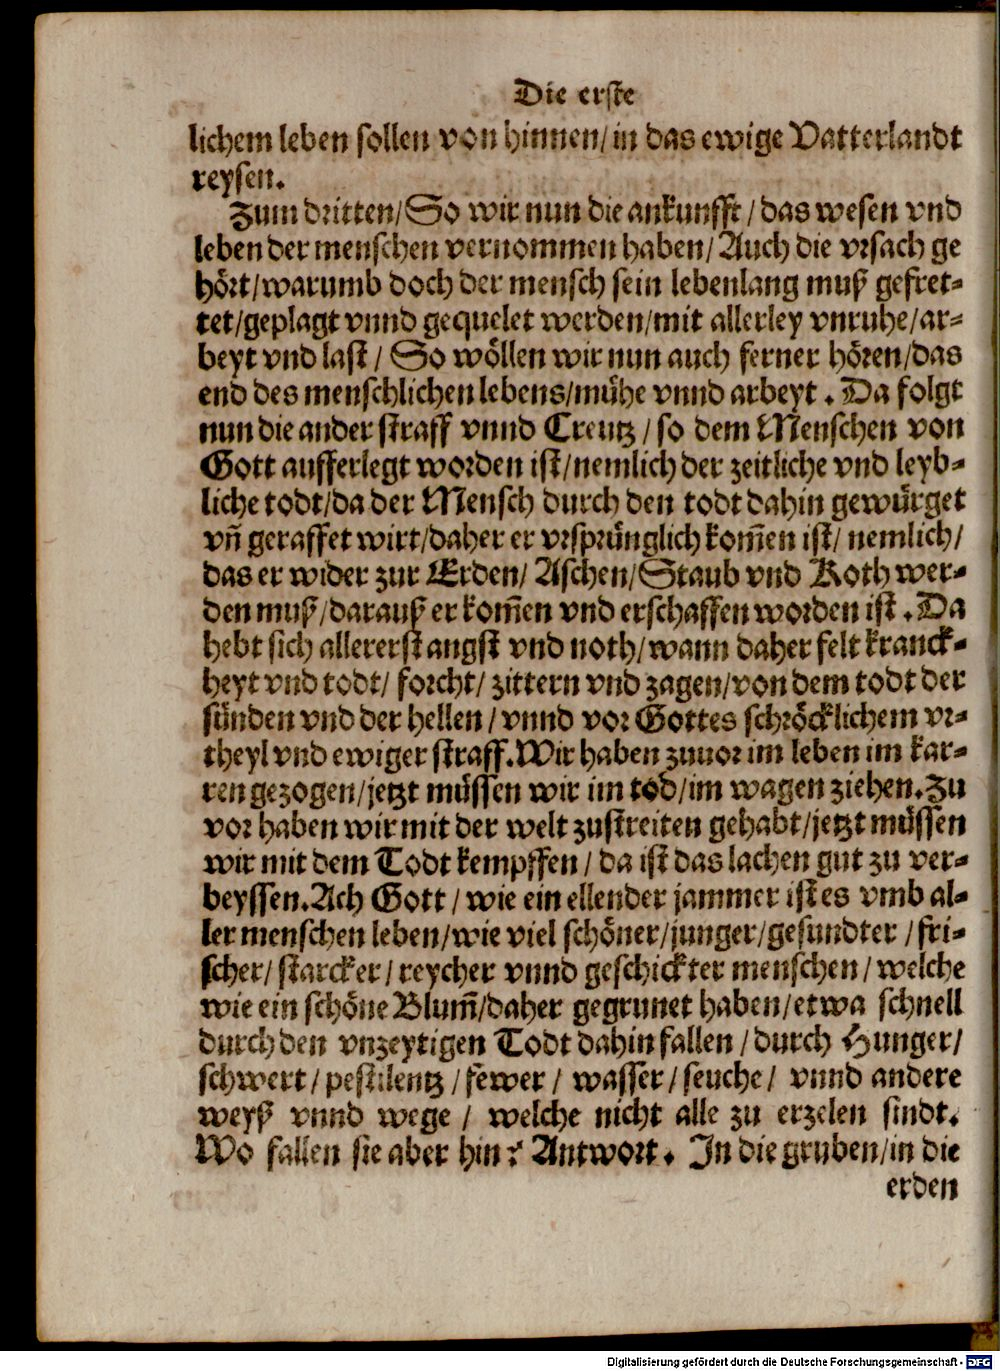 Die erste
lichem leben sollen von hinnen/ in das ewige Vatterlandt
reysen.
Zum dritten/ So wir nun die ankunfft / das wesen vnd
leben der menschen vernommen haben/ Auch die vrsach ge
hört/ warumb doch der mensch sein lebenlang muß gefret-
tet/ geplagt vnnd gequelet werden/ mit allerley vnruhe/ ar-
beyt vnd last / So wöllen wir nun auch ferner hören/ das
end des menschlichen lebens/ mühe vnnd arbeyt . Da folgt
nun die ander straff vnnd Creutz / so dem Menschen von
Gott aufferlegt worden ist/ nemlich der zeitliche vnd leyb-
liche todt/ da der Mensch durch den todt dahin gewürget
vñ geraffet wirt/ daher er vrsprünglich kom̃en ist/ nemlich/
das er wider zur Erden/ Aschen/ Staub vnd Koth wer-
den muß/ darauß er kom̃en vnd erschaffen worden ist . Da
hebt sich allererst angst vnd noth/ wann daher felt kranck-
heyt vnd todt/ forcht/ zittern vnd zagen/ von dem todt der
sünden vnd der hellen / vnnd vor Gottes schröcklichem vr-
theyl vnd ewiger straff. Wir haben zuuor im leben im kar-
ren gezogen/ jetzt müssen wir im tod/ im wagen ziehen. Zu
vor haben wir mit der welt zustreiten gehabt/ jetzt müssen
wir mit dem Todt kempffen / da ist das lachen gut zu ver-
beyssen. Ach Gott / wie ein ellender jammer ist es vmb al-
ler menschen leben/ wie viel schöner/ junger/ gesundter / fri-
scher/ starcker / reycher vnnd geschickter menschen / welche
wie ein schöne Blum̃/ daher gegrunet haben/ etwa schnell
durch den vnzeytigen Todt dahin fallen / durch Hunger/
schwert / pestilentz / fewer / wasser / seuche / vnnd andere
weyß vnnd wege / welche nicht alle zu erzelen sindt.
Wo fallen sie aber hin? Antwort . In die gruben/ in die
erden
Digitalisierung gefördert durch die Deutsche Forschungsgemeinschaft - DFG